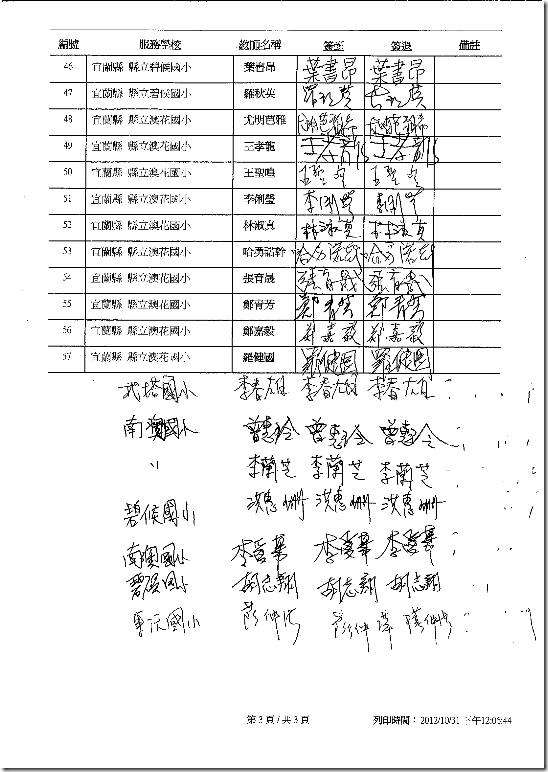 編號 服務學校 教師名稱 簽到 簽退 備註
46 宜蘭縣 縣立碧候國小 葉書昂 葉書昂 葉書昂
47 宜蘭縣 縣立碧候國小 羅秋英
48 宜蘭縣 縣立澳花國小 尤明芭雅
49 宜蘭縣 縣立澳花國小 王孝龍 王孝龍 王孝龍
50 宜蘭縣 縣立澳花國小 王聖鳴
51 宜蘭縣 縣立澳花國小
52 宜蘭縣 縣立澳花國小 林淑真 林淑真 林淑真
53 宜蘭縣 縣立澳花國小 哈勇諾幹 哈勇諾幹 哈勇諾幹
54 宜蘭縣 縣立澳花國小 張育晟
55 宜蘭縣 縣立澳花國小 鄭青芳
56 宜蘭縣 縣立澳花國小 鄭嘉毅 鄭嘉毅 鄭嘉毅
57 宜蘭縣 縣立澳花國小 羅健國 羅健國 羅健國
武塔國小 李春雄 李春雄 李春雄
南澳國小 曾惠玲 曾惠玲 曾惠玲
〃 李蘭芝 李蘭芝 李蘭芝
碧候國小 洪惠姍 洪惠姍 洪惠姍
南澳國小
碧候國小 胡志翔 胡志翔 胡志翔
國小
第 3 頁 / 共 3 頁 列印時間： 2012/10/31 下午12:05:44